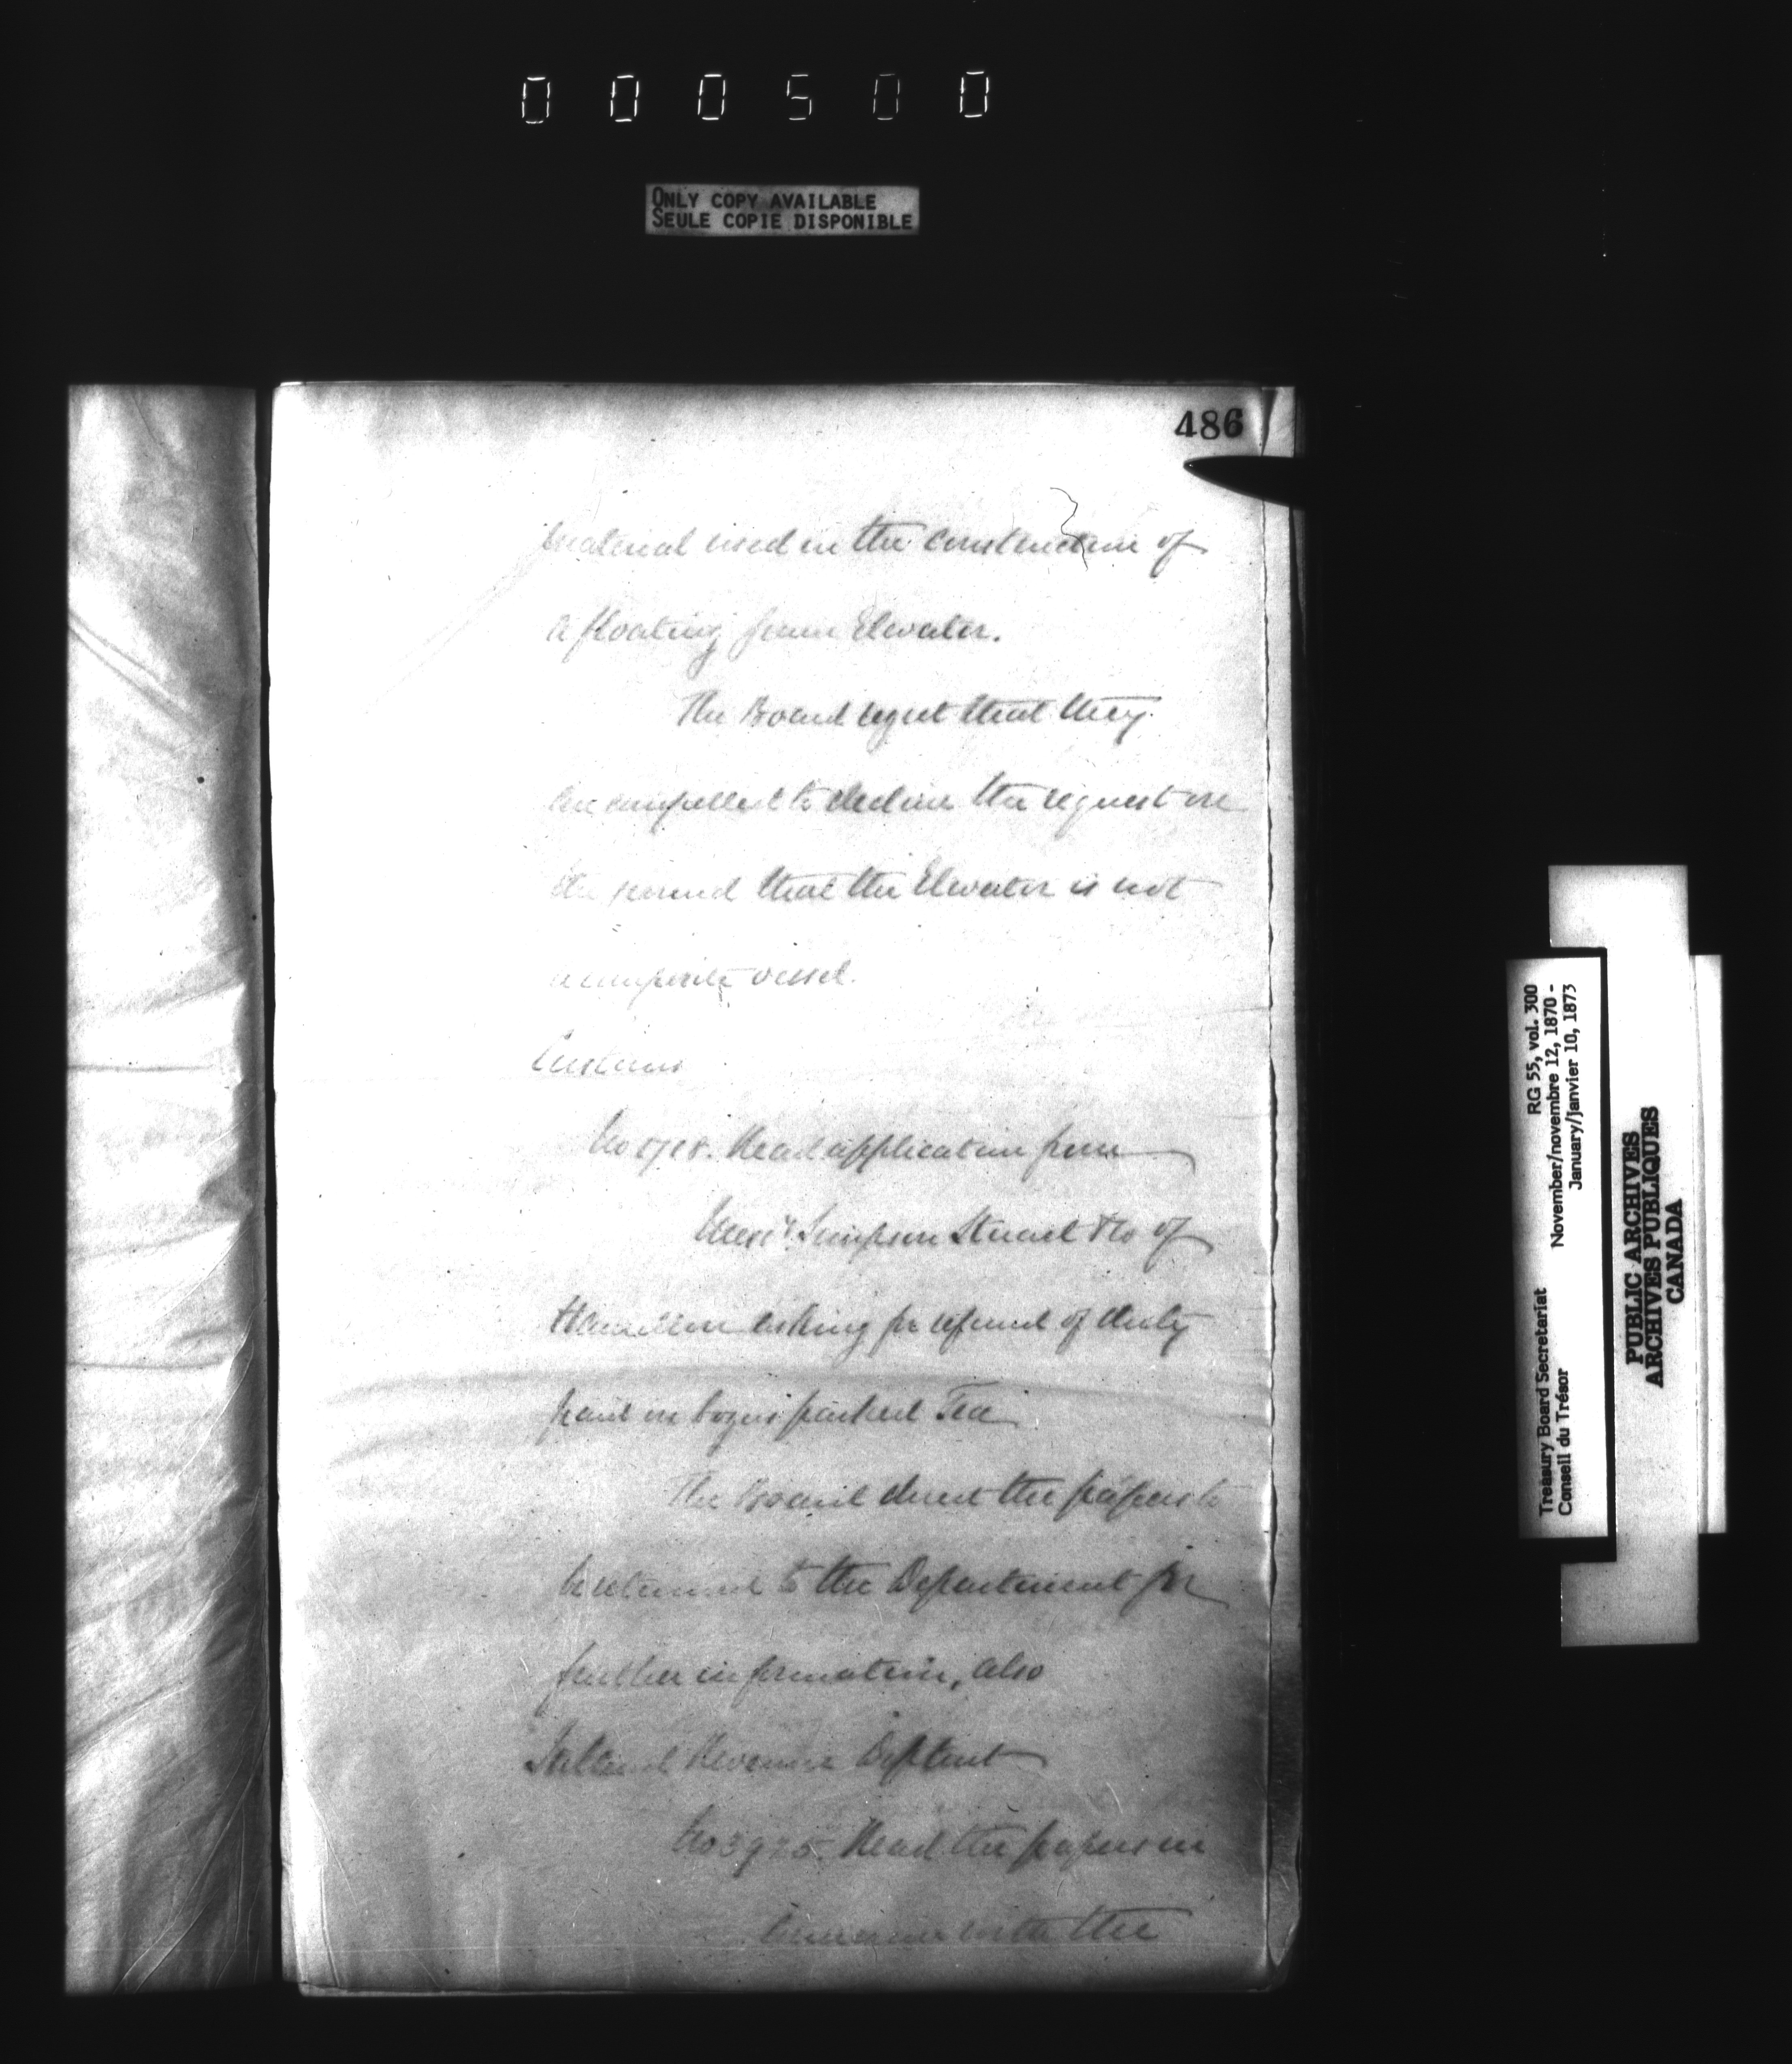 000500
ONLY COPY AVAILABLE
SEULE COPIE DISPONIBLE
486
material used in the construction of
a floating grain Elevator.
The Board regret that they
are compelled to decline the request on
the ground that the Elevator is not
a composite vessel.
Customs
Read application from
Messrs. Simpson Stuart & Co of
Hamilton asking for refund of duty
paid on bogus packed Tea
The Board direct the papers to
be returned to the Department for
further information, also
Inland Revenue Deptmt
No 3975. Read the papers in
with the
RG 55, vol. 300
November/novembre 12, 1870 -
January/janvier 10, 1873
Treasury Board Secretariat
Conseil du Trésor
PUBLIC ARCHIVES
ARCHIVES PUBLIQUES
CANADA